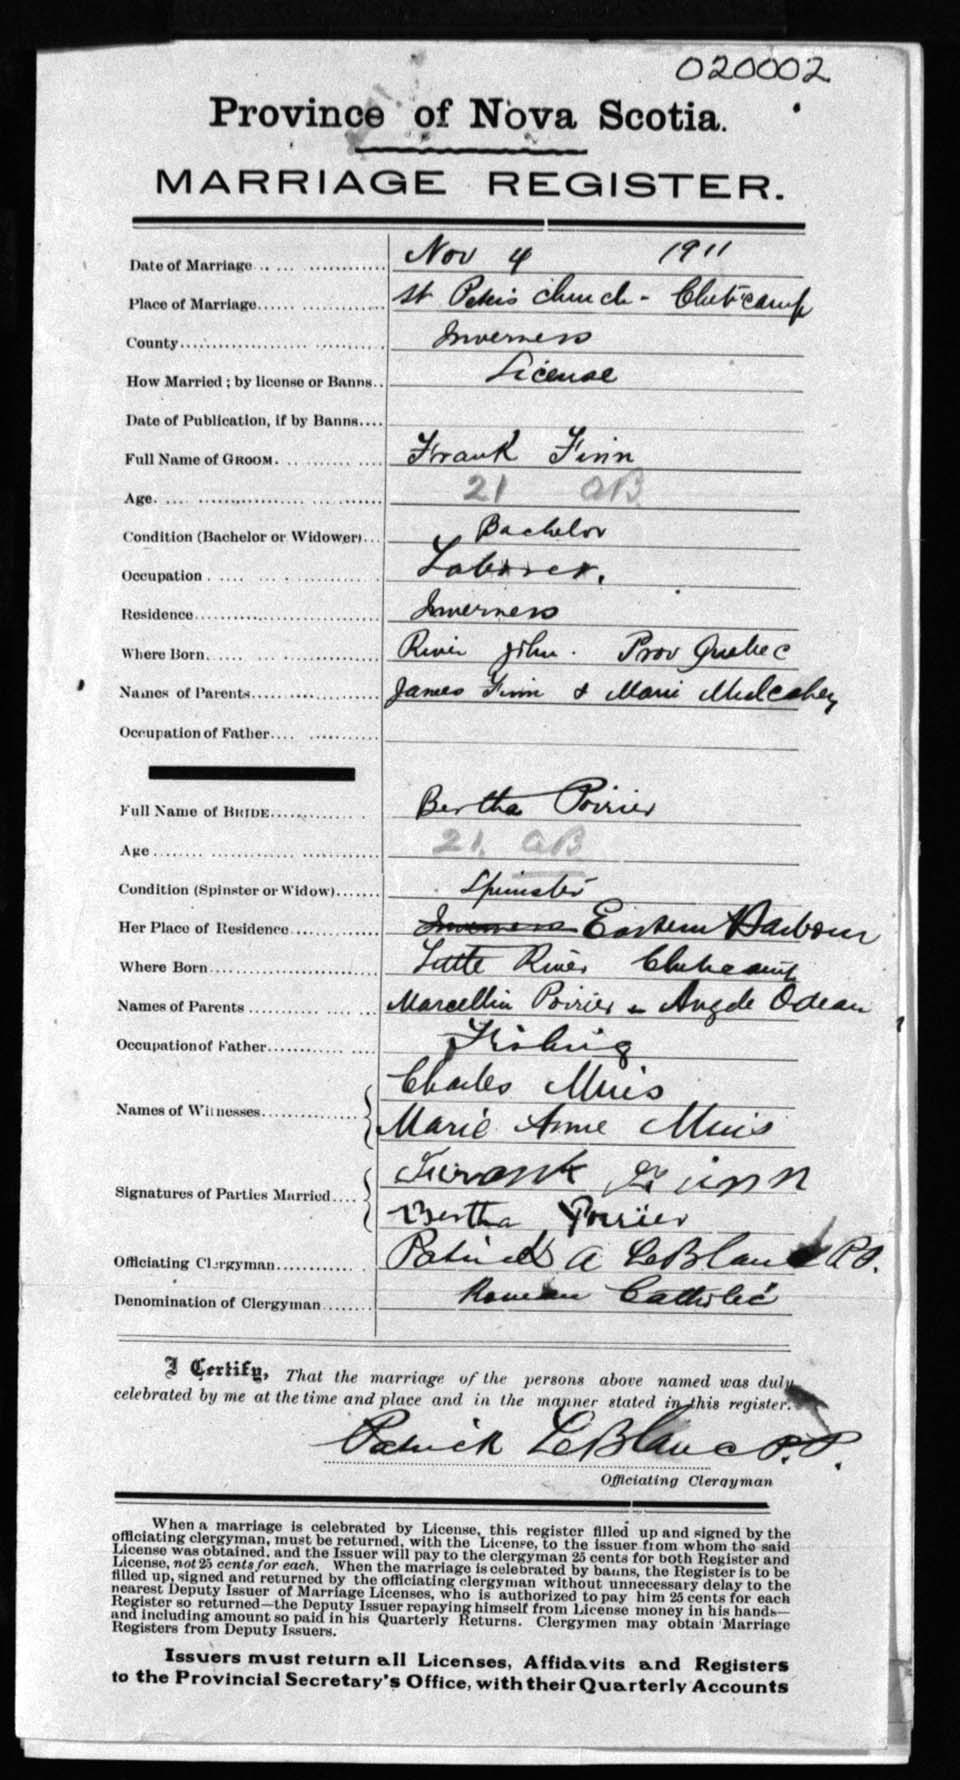 020002
Province of Nova Scotia.
MARRIAGE REGISTER.
Date of Marriage Nov 4 1911
Place of Marriage St Peters Church - Cheticamp
County Inverness
How Married ; by license or Banns.. License
Date of Publication, if by Banns....
Full Name of GROOM. Frank Finn
Age 21 AB
Condition (Bachelor or Widower) Bachelor
Occupation Laborer.
Residence Inverness
Where Born River John. Prov Quebec
Names of Parents James Finn & Marie Mulcahey
Occupation of Father
Full Name of BRIDE Bertha Poirier
Age 21. AB
Condition (Spinster or Widow) Spinster
Her Place of Residence Inverness Eastern Harbour
Where Born Little River Cheticamp
Names of Parents Marcellin Poirier Angele Odean
Occupation of Father Fishing
Names of Witnesses Charles Muis
Marie Anne Muis
Signatures of Parties Married Frank Finn
Bertha Poirier
Officiating Clergyman Patrick A LeBlanc P.P.
Denomination of Clergyman Roman Catholic
I Certify, That the marriage of the persons above named was duly
celebrated by me at the time and place and in the manner stated in this register.
Patrick LeBlanc P.P.
Officiating Clergyman
When a marriage is celebrated by License, this register filled up and signed by the
officiating clergyman, must be returned, with the License, to the issuer from whom the said
License was obtained, and the Issuer will pay to the clergyman 25 cents for both Register and
License, not 25 cents for each. When the marriage is celebrated by banns, the Register is to be
filled up, signed and returned by the officiating clergyman without unnecessary delay to the
nearest Deputy Issuer of Marriage Licenses, who is authorized to pay him 25 cents for each
Register so returned—the Deputy Issuer repaying himself from License money in his hands—
and including amount so paid in his Quarterly Returns. Clergymen may obtain Marriage
Registers from Deputy Issuers.
Issuers must return all Licenses, Affidavits and Registers
to the Provincial Secretary's Office, with their Quarterly Accounts